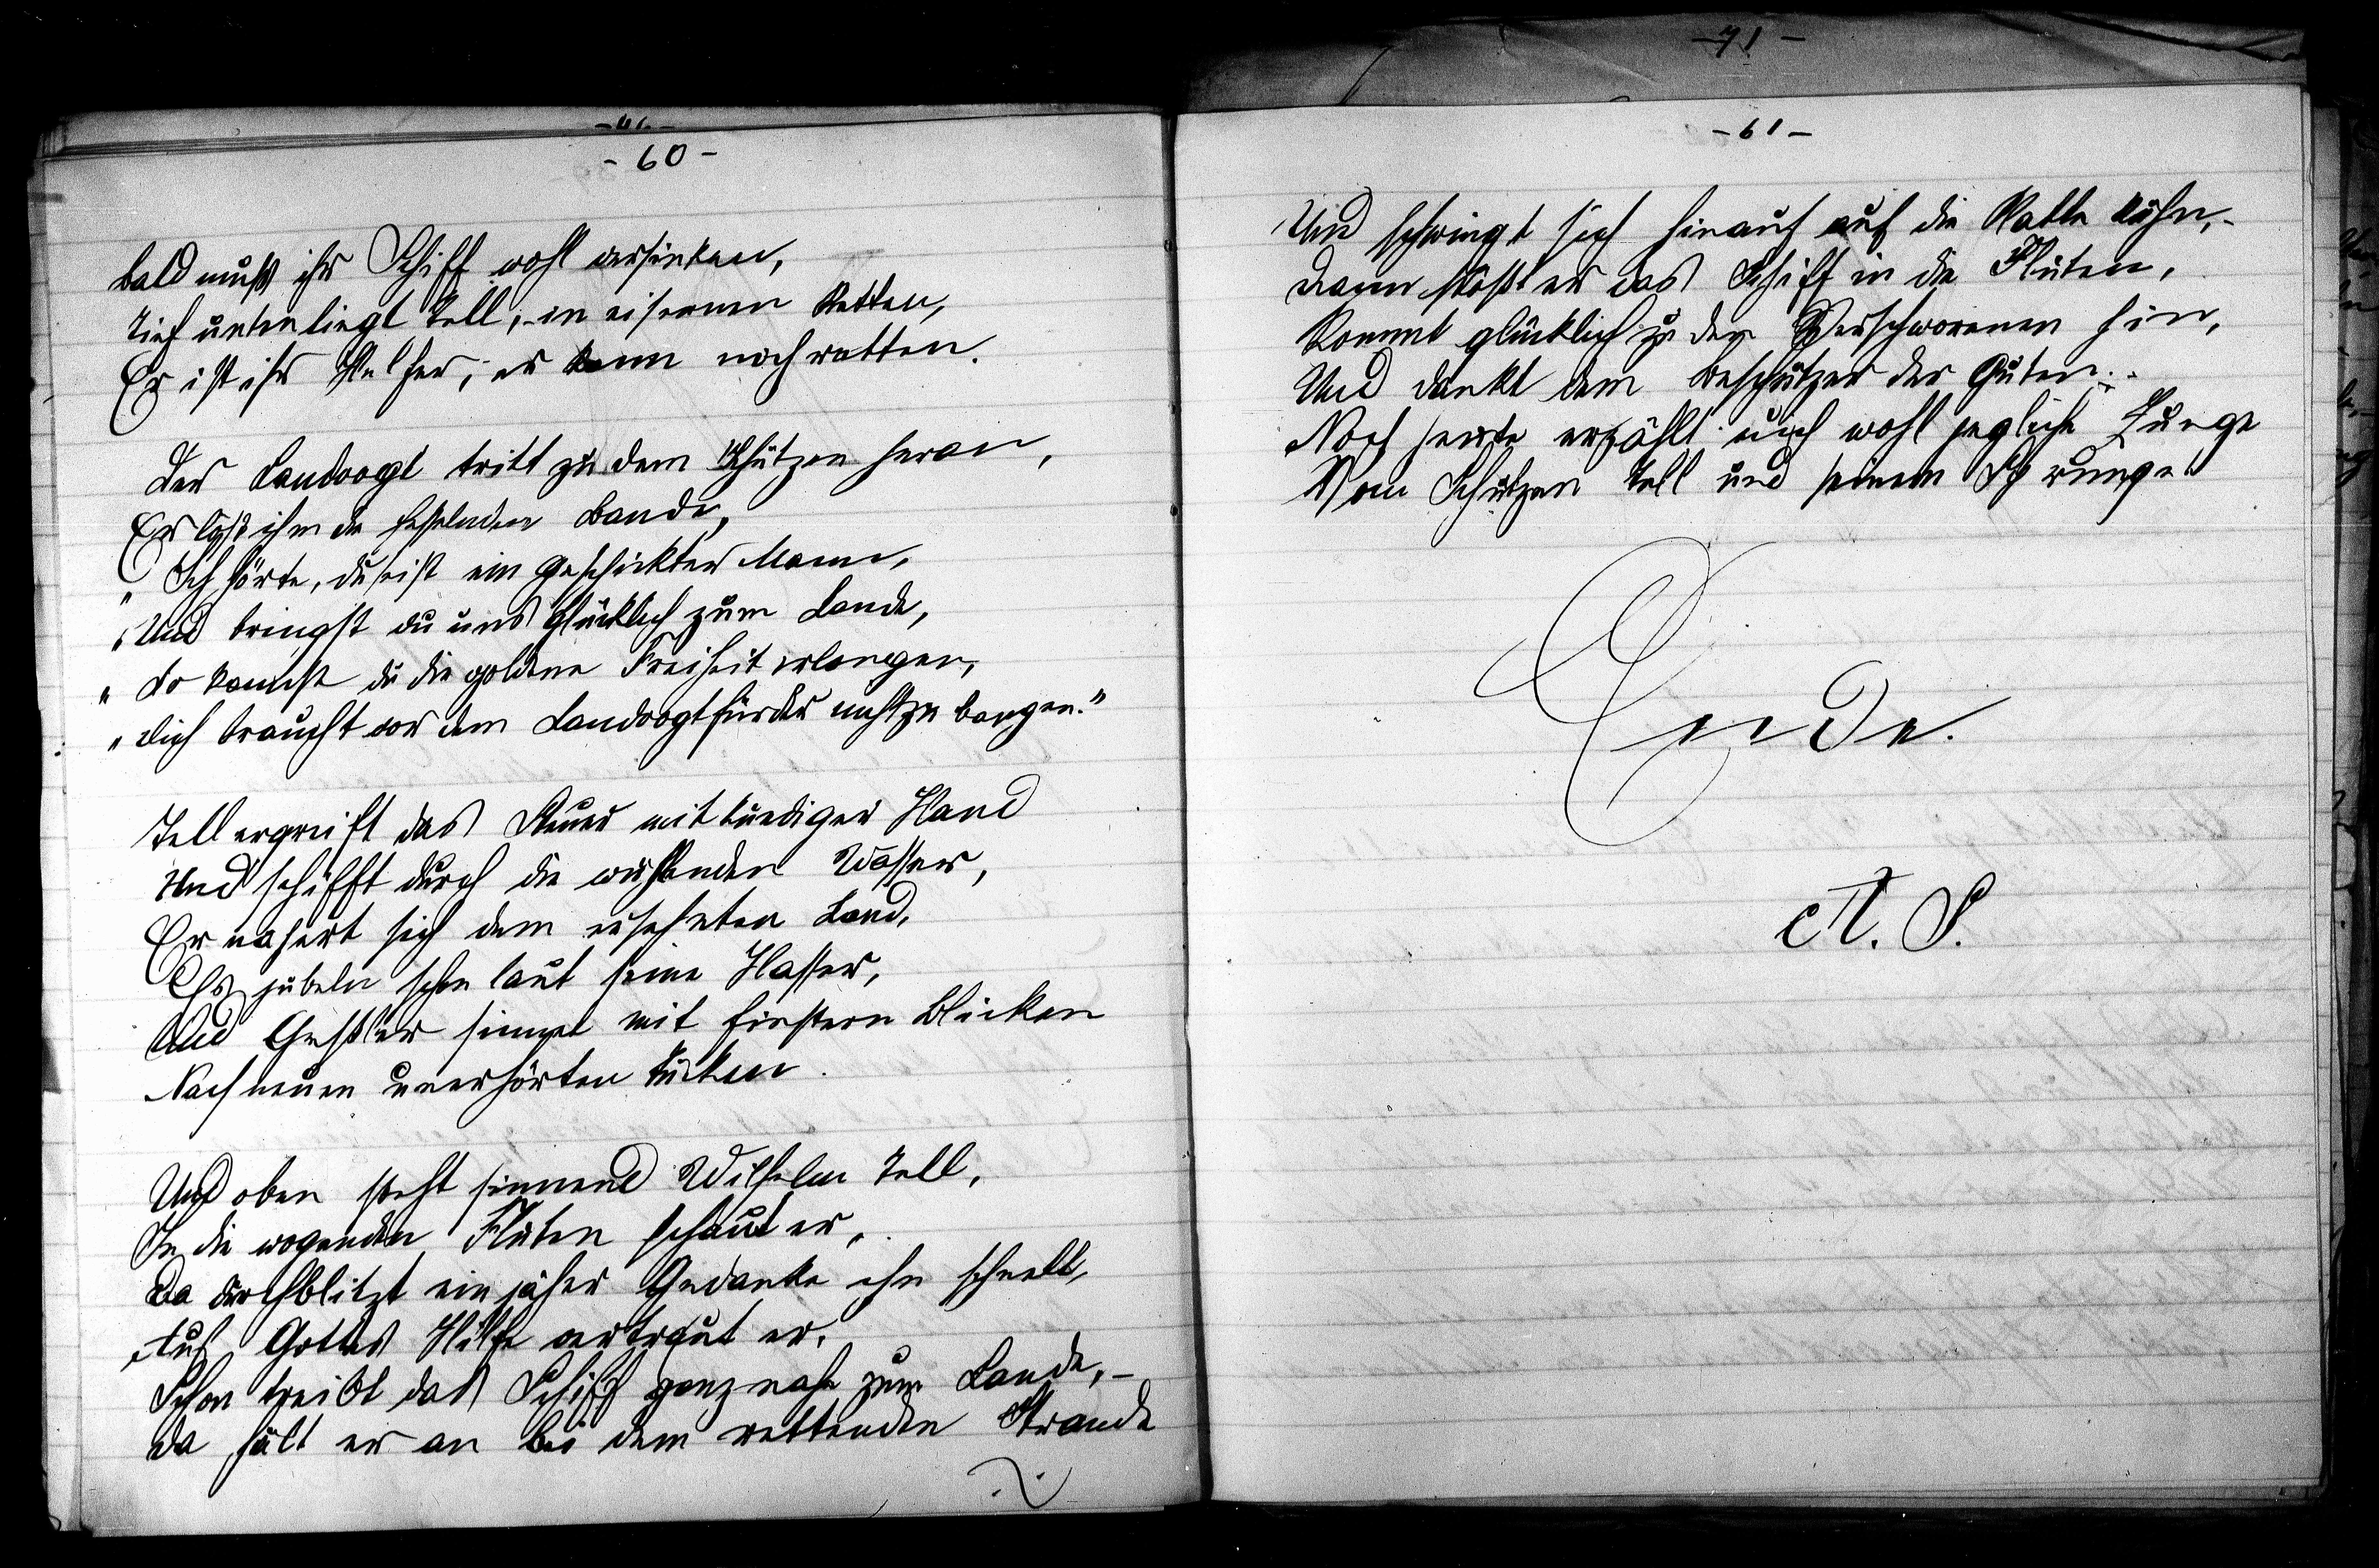 -46-
-60-
bald muß ihr Schiff wohl versinken,
Tief unten liegt Tell, in eisernen Ketten,
Er ist ihr Helfer, er kann noch retten.
Der Landvogt tritt zu dem Schützen heran,
Er löst ihm die fesselnden Bande,
„Ich hörte, du seist ein geschickter Mann,
„Und bringst du uns glücklich zum Lande,
„So kannst du die goldene Freiheit erlangen,
„Dich braucht vor dem Landvogt fürder nicht zu bangen."
Tell ergreift das Steuer mit kundiger Hand
Und schifft durch die wütenden Wasser,
Er nähert sich dem ersehnten Land,
Es jubeln schon laut seine Hasser,
Und Geßler sinnet mit finstern Blicken
Nach neuen unerhörten Tücken.
Und oben steht sinnend Wilhelm Tell,
In die wogenden Fluten schaut er,
Da durchblitzt ein jäher Gedanke ihn schnell,
Auf Gottes Hilfe vertraut er.
Schon treibt das Schiff ganz nahe zum Lande,-
da hält er an bei dem rettenden Strande
-71-
-61-
Und schwingt sich hinauf auf die Platte kühn,-
Dann stößt er das Schiff in die Fluten,
Kommt glücklich zu den Verschworenen hin,
Und dankt dem Beschützer der Guten.-
Noch heute erzählt euch wohl jegliche Zunge
Vom Schützen Tell und seinem Sprunge.
Ende.
A. S.